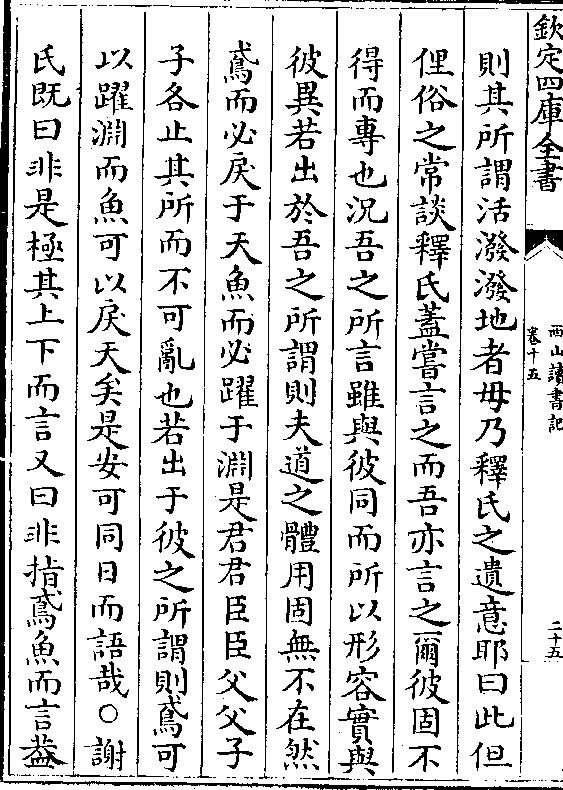 欽定四庫全書
西山讀書記
卷十五
二十五
則其所謂活潑潑地者毋乃釋氏之遺意耶曰此但
俚俗之常談釋氏蓋嘗言之而吾亦言之爾彼固不
得而專也況吾之所言雖與彼同而所以形容實與
彼異若出於吾之所謂則夫道之體用固無不在然
鳶而必戾于天魚而必躍于淵是君君臣臣父父子
子各止其所而不可亂也若出于彼之所謂則鳶可
以躍淵而魚可以戾天矣是安可同日而語哉○謝
氏既曰非是極其上下而言又曰非指鳶魚而言葢